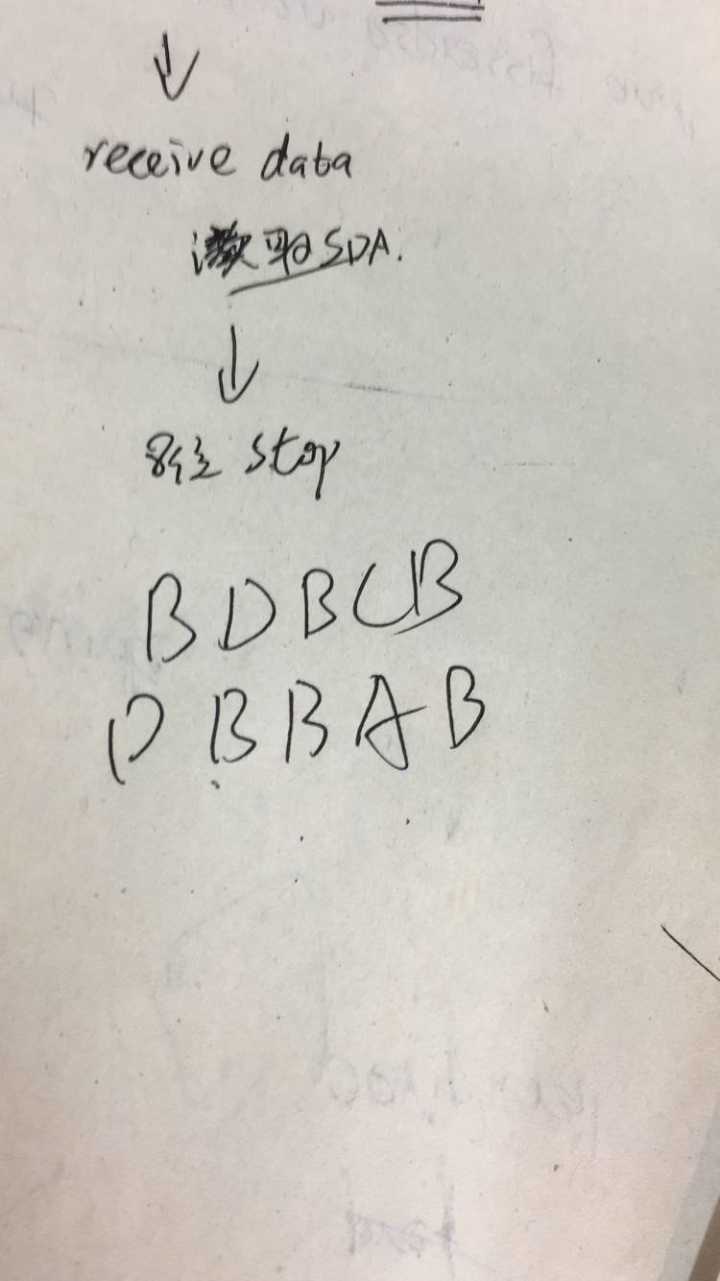 receive data
读取SDA.
stop
BDBCB
DBBAB